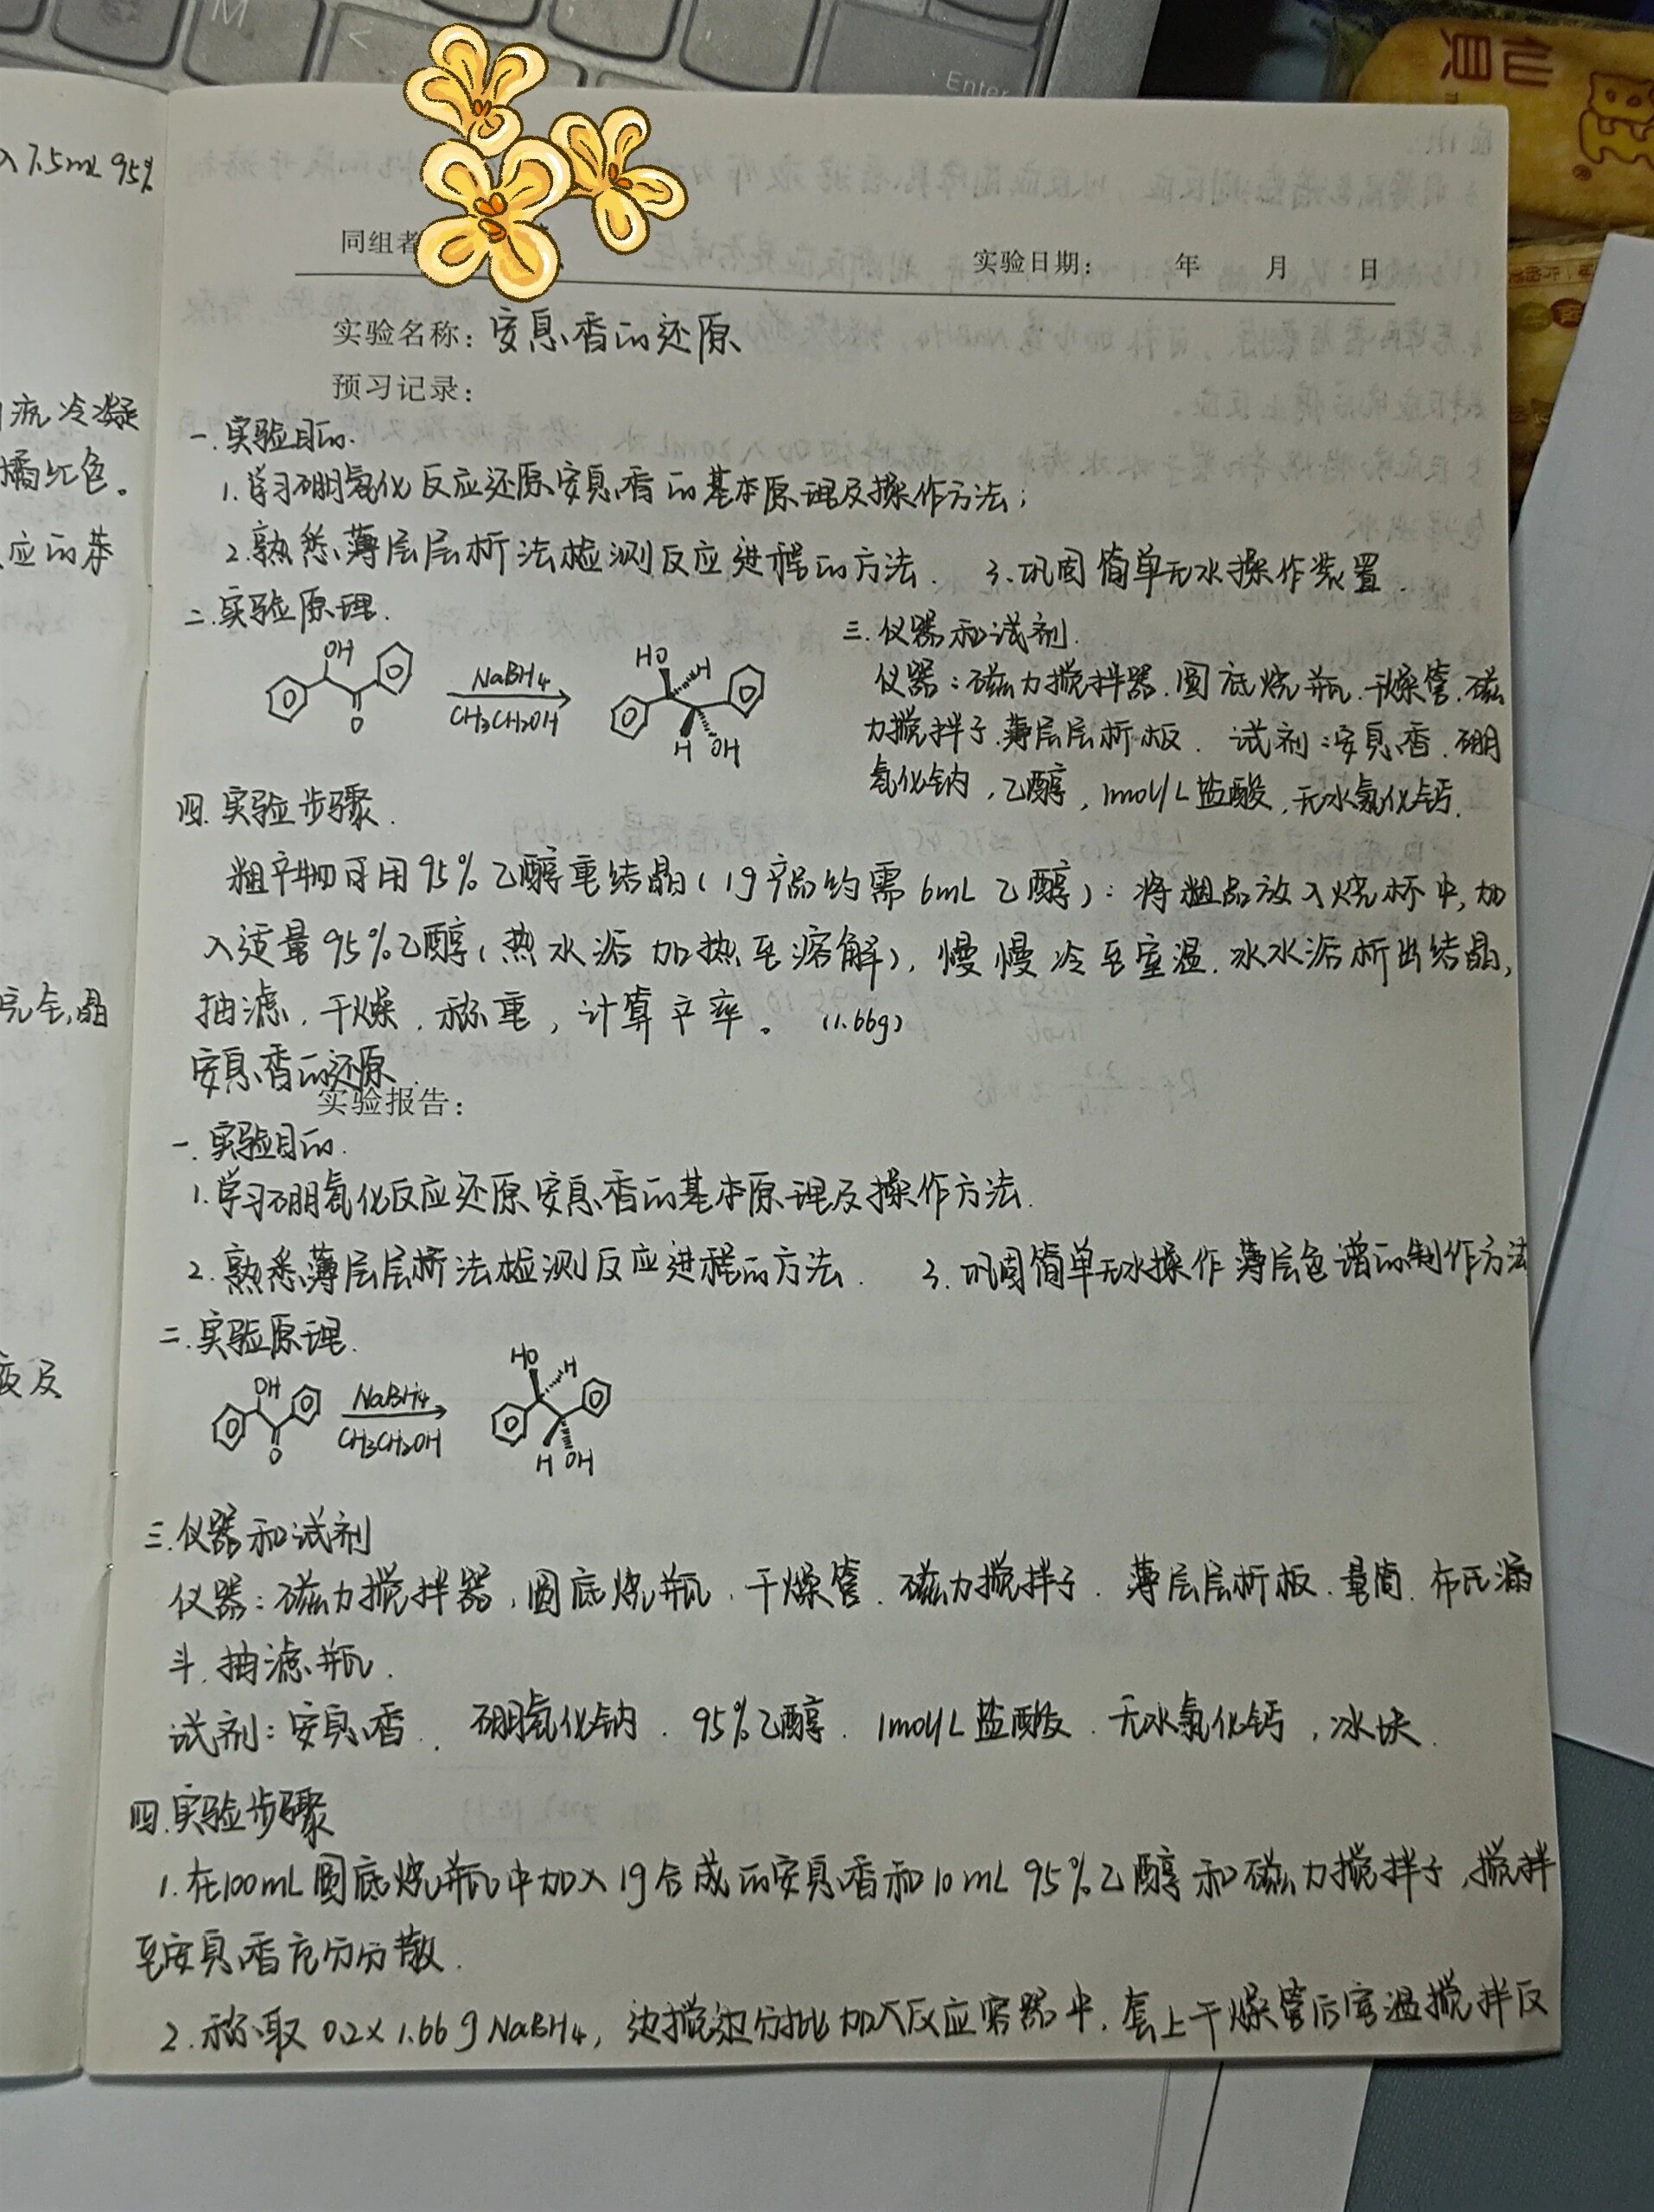 M
<
Enter
仙贝
入7.5mL 95%
同组者
实验日期： 年 月 日
实验名称：安息香的还原
预习记录：
流冷凝
橘红色。
应的苯
完全,晶
液及
一.实验目的.
1.学习硼氢化反应还原安息香的基本原理及操作方法；
2.熟悉薄层层析法检测反应进程的方法. 3.巩固简单无水操作装置.
二.实验原理.
OH
O
NaBH4
CH3CH2OH
HO
H
H
OH
三.仪器和试剂.
仪器：磁力搅拌器.圆底烧瓶.干燥管.磁
力搅拌子.薄层层析板. 试剂：安息香.硼
氢化钠,乙醇,1mol/L盐酸,无水氯化钙.
四.实验步骤.
粗产物可用95%乙醇重结晶(1g产品约需6mL乙醇)：将粗品放入烧杯中,加
入适量95%乙醇(热水浴加热至溶解),慢慢冷至室温.冰水浴析出结晶,
抽滤.干燥.称重,计算产率。(1.66g)
安息香的还原.
实验报告：
一.实验目的.
1.学习硼氢化反应还原安息香的基本原理及操作方法.
2.熟悉薄层层析法检测反应进程的方法. 3.巩固简单无水操作薄层色谱的制作方法
二.实验原理.
OH
O
NaBH4
CH3CH2OH
HO
H
H
OH
三.仪器和试剂
仪器：磁力搅拌器,圆底烧瓶.干燥管.磁力搅拌子.薄层层析板.量筒.布氏漏
斗.抽滤瓶.
试剂：安息香. 硼氢化钠.95%乙醇.1mol/L盐酸.无水氯化钙,冰块.
四.实验步骤
1.在100mL圆底烧瓶中加入1g合成的安息香和10mL 95%乙醇和磁力搅拌子,搅拌
至安息香充分分散.
2.称取0.2×1.66g NaBH4,边搅边分批加入反应容器中.套上干燥管后室温搅拌反